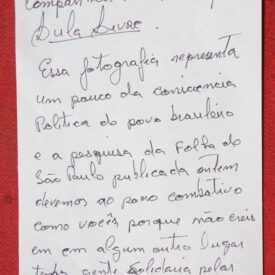 Lula Livre.
Essa fotografia representa
um pouco da consciencia
Política do povo brasileiro
e a pesquisa da Folha de
São Paulo publicada ontem
devemos ao povo combativo
como vocês porque não creio
em em algum outro lugar
gente solidaria pelas